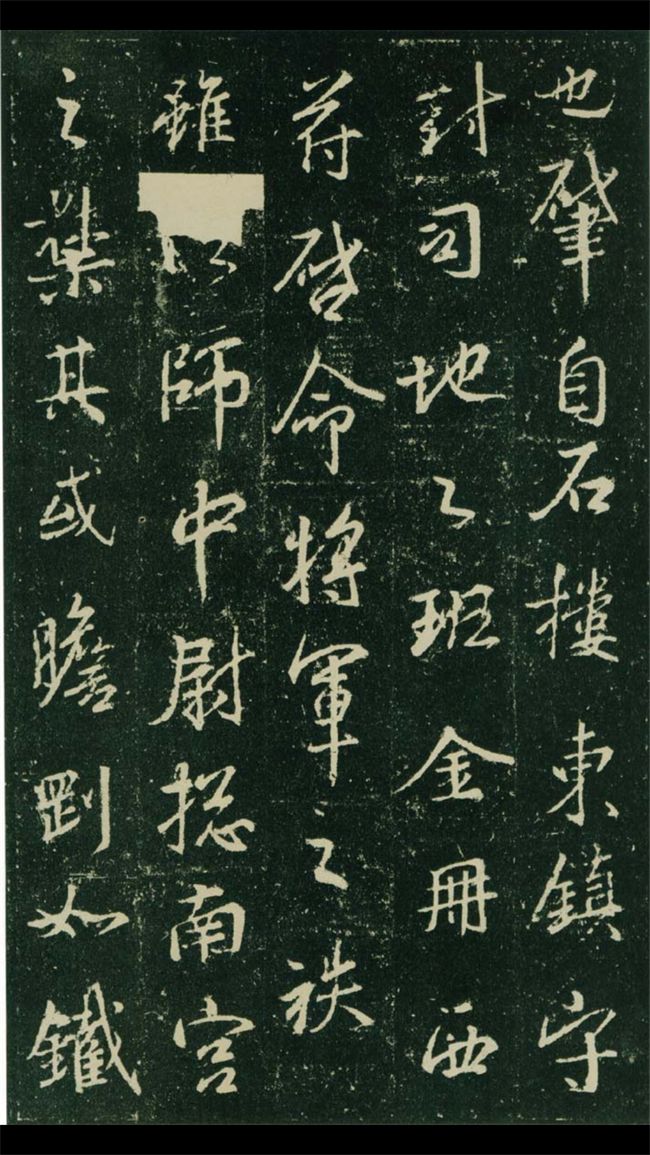 也肇自石樓東鎮守
封司地之班金冊西
符啓命將軍之秩
雖以師中尉揔南宮
之其或瞻剛如鐵